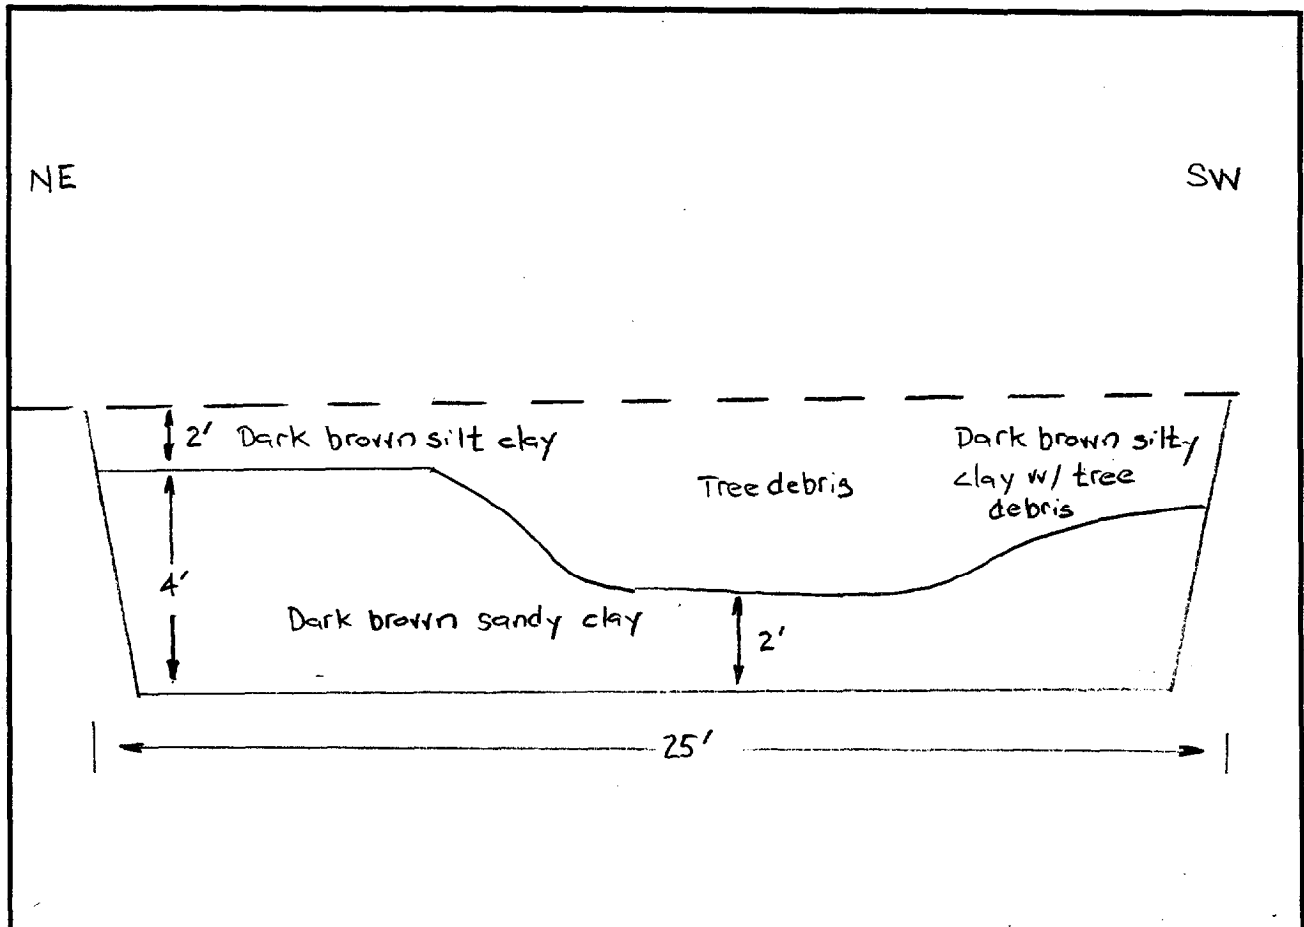 NE
SW
2' Dark brown silt clay
Tree debris
Dark brown silty
clay w/ tree
debris
4'
Dark brown sandy clay
2'
25'